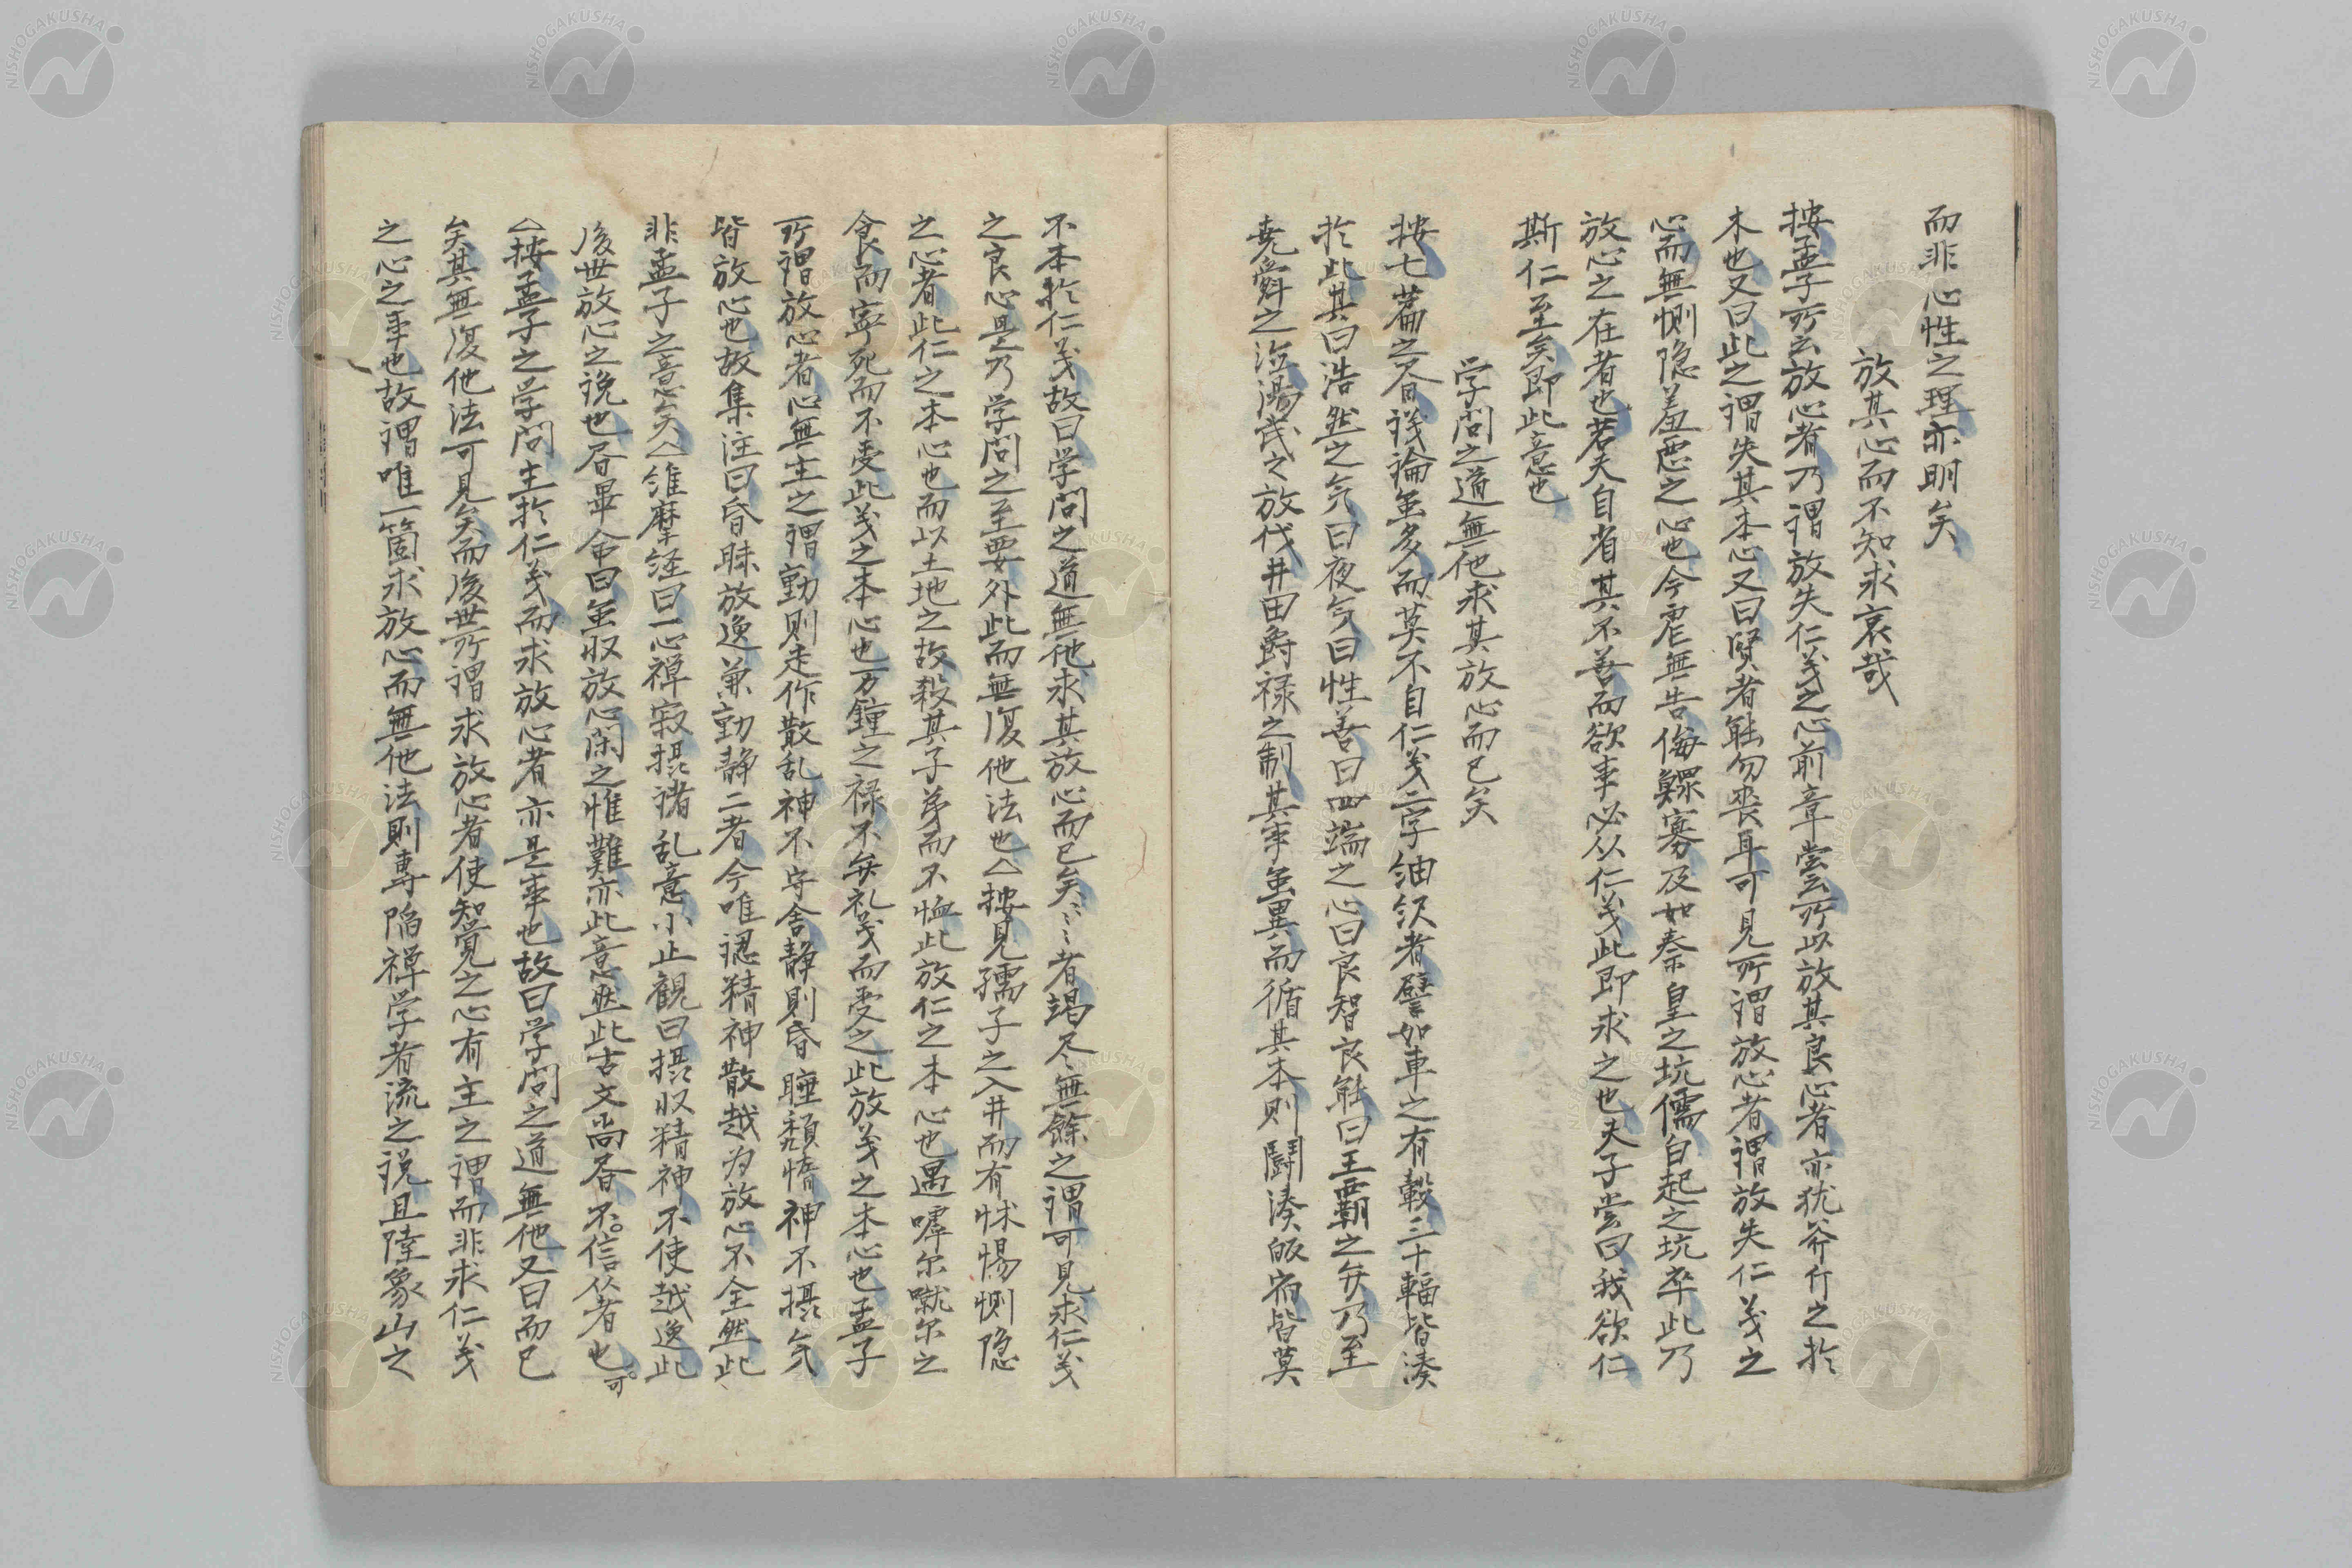 而非心性之理亦明矣
放其心而不知求哀哉
按孟子所云放心者乃謂放失仁義之心前章嘗云所以放其良心者亦犹斧斤之於
木也又曰此之謂失其本心又曰賢者能勿喪耳可見所謂放心者謂放失仁義之
心而無惻隐羞悪之心也今虐無告侮鰥寡及如秦皇之坑儒白起之坑卒此乃
放心之在者也若夫自省其不善而欲事必从仁義此即求之也夫子嘗曰我欲仁
斯仁至矣即此意也
学問之道無他求其放心而已矣
按七篇之旨議論虽多而莫不自仁義二字紬繹者譬如車之有轂三十輻皆湊
於此其曰浩然之気曰夜気曰性善曰四端之心曰良智良能曰王覇之弁乃至
堯舜之治湯武之放伐井田爵禄之制其事虽異而循其本則闘湊皈宿皆莫
不本於仁義故曰学問之道無他求其放心而已矣〻〻者竭尽無餘之謂可見求仁義
之良心是乃学問之至要外此而無復他法也△按見孺子之入井而有怵惕惻隐
之心者此仁之本心也而以土地之故殺其子弟而不恤此放仁之本心也遇嘑尓噈尓之
食而寧死而不受此義之本心也万鍾之禄不弁礼義而受之此放義之本心也孟子
所謂放心者心無主之謂動則走作散乱神不守舎静則昏睡頽惰神不摂気
皆放心也故集注曰昏昧放逸兼動静二者今唯認精神散越为放心不全然此
非孟子之意矣△維摩経曰一心禅寂摂諸乱意小止観曰摂収精神不使越逸此
後世放心之説也昏畢命曰虽収放心閑之惟難亦此意然此古文尚昏不信从者也
可
△按孟子之学問主於仁義而求放心者亦是事也故曰学問之道無他又曰而已
矣其無復他法可見矣而後世所謂求放心者使知覚之心有主之謂而非求仁義
之心之事也故謂唯一箇求放心而無他法則専陥禅学者流之説且陸象山之